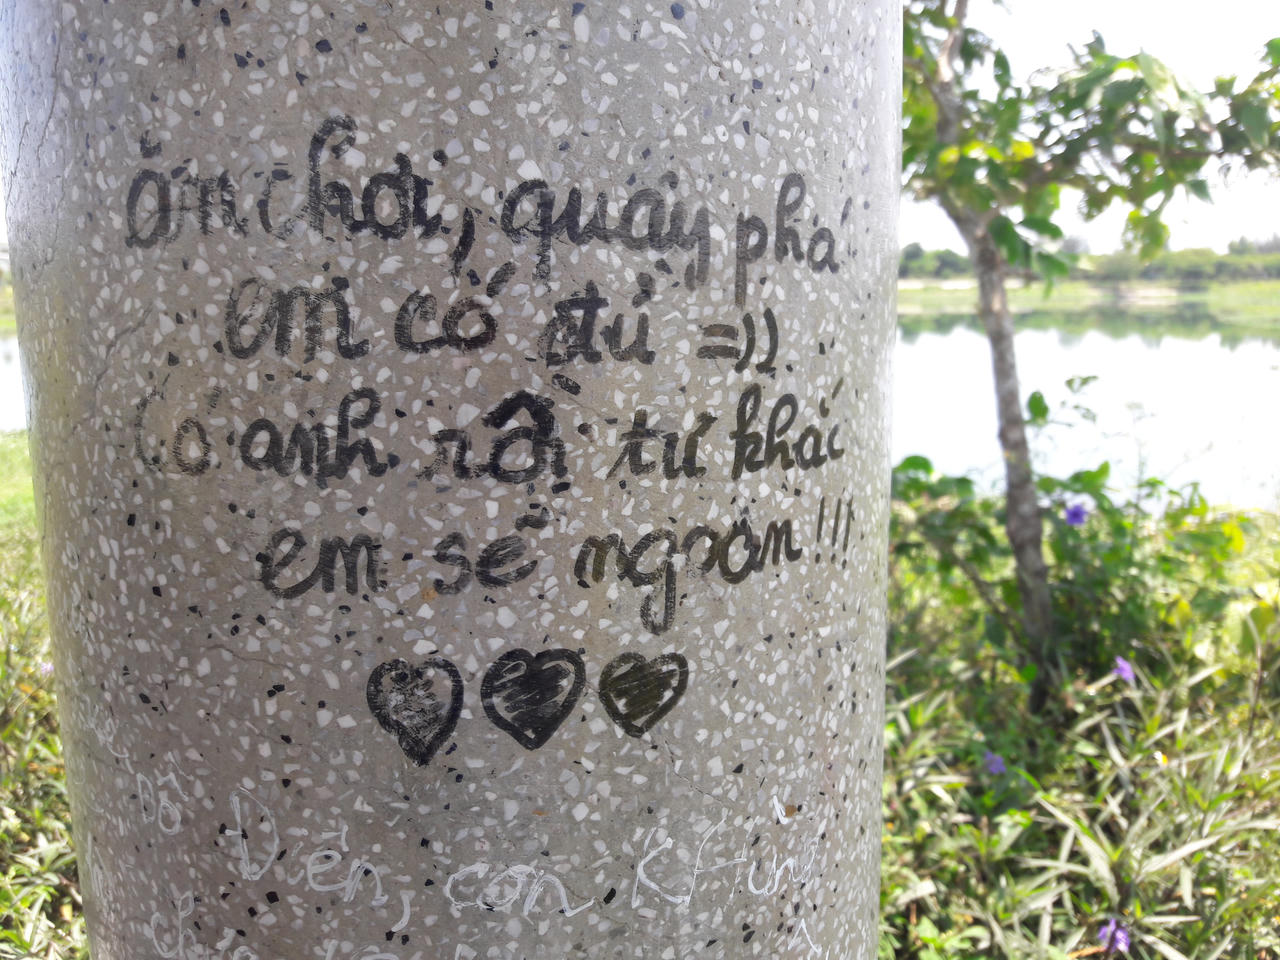 ăn chơi, quậy phá
em có đủ =)).
Có anh rồi tự khắc
em sẽ ngoan!!!
Điên, con khùng